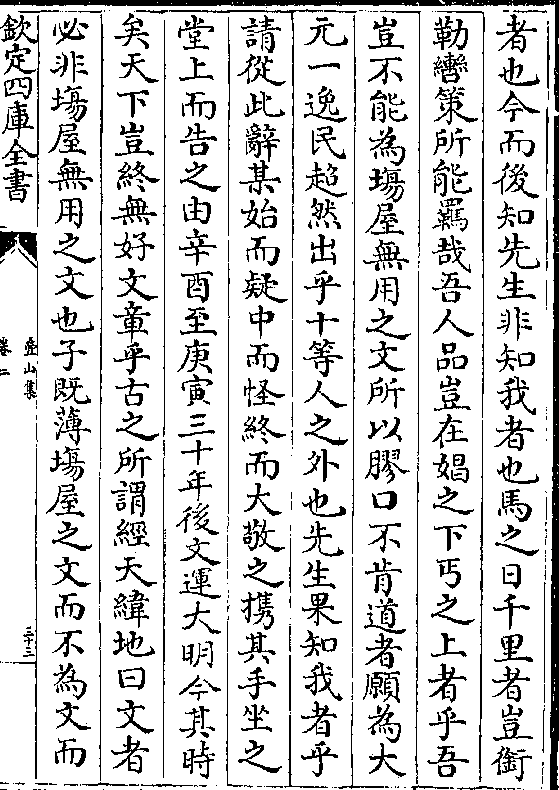 者也今而後知先生非知我者也馬之日千里者豈銜
勒轡策所能羈哉吾人品豈在娼之下丐之上者乎吾
豈不能為塲屋無用之文所以膠口不肯道者願為大
元一逸民超然出乎十等人之外也先生果知我者乎
請從此辭某始而疑中而怪終而大敬之携其手坐之
堂上而告之由辛酉至庚寅三十年後文運大明今其時
矣天下豈終無好文章乎古之所謂經天緯地曰文者
必非塲屋無用之文也子既薄塲屋之文而不為文而
欽定四庫全書
疊山集
卷二